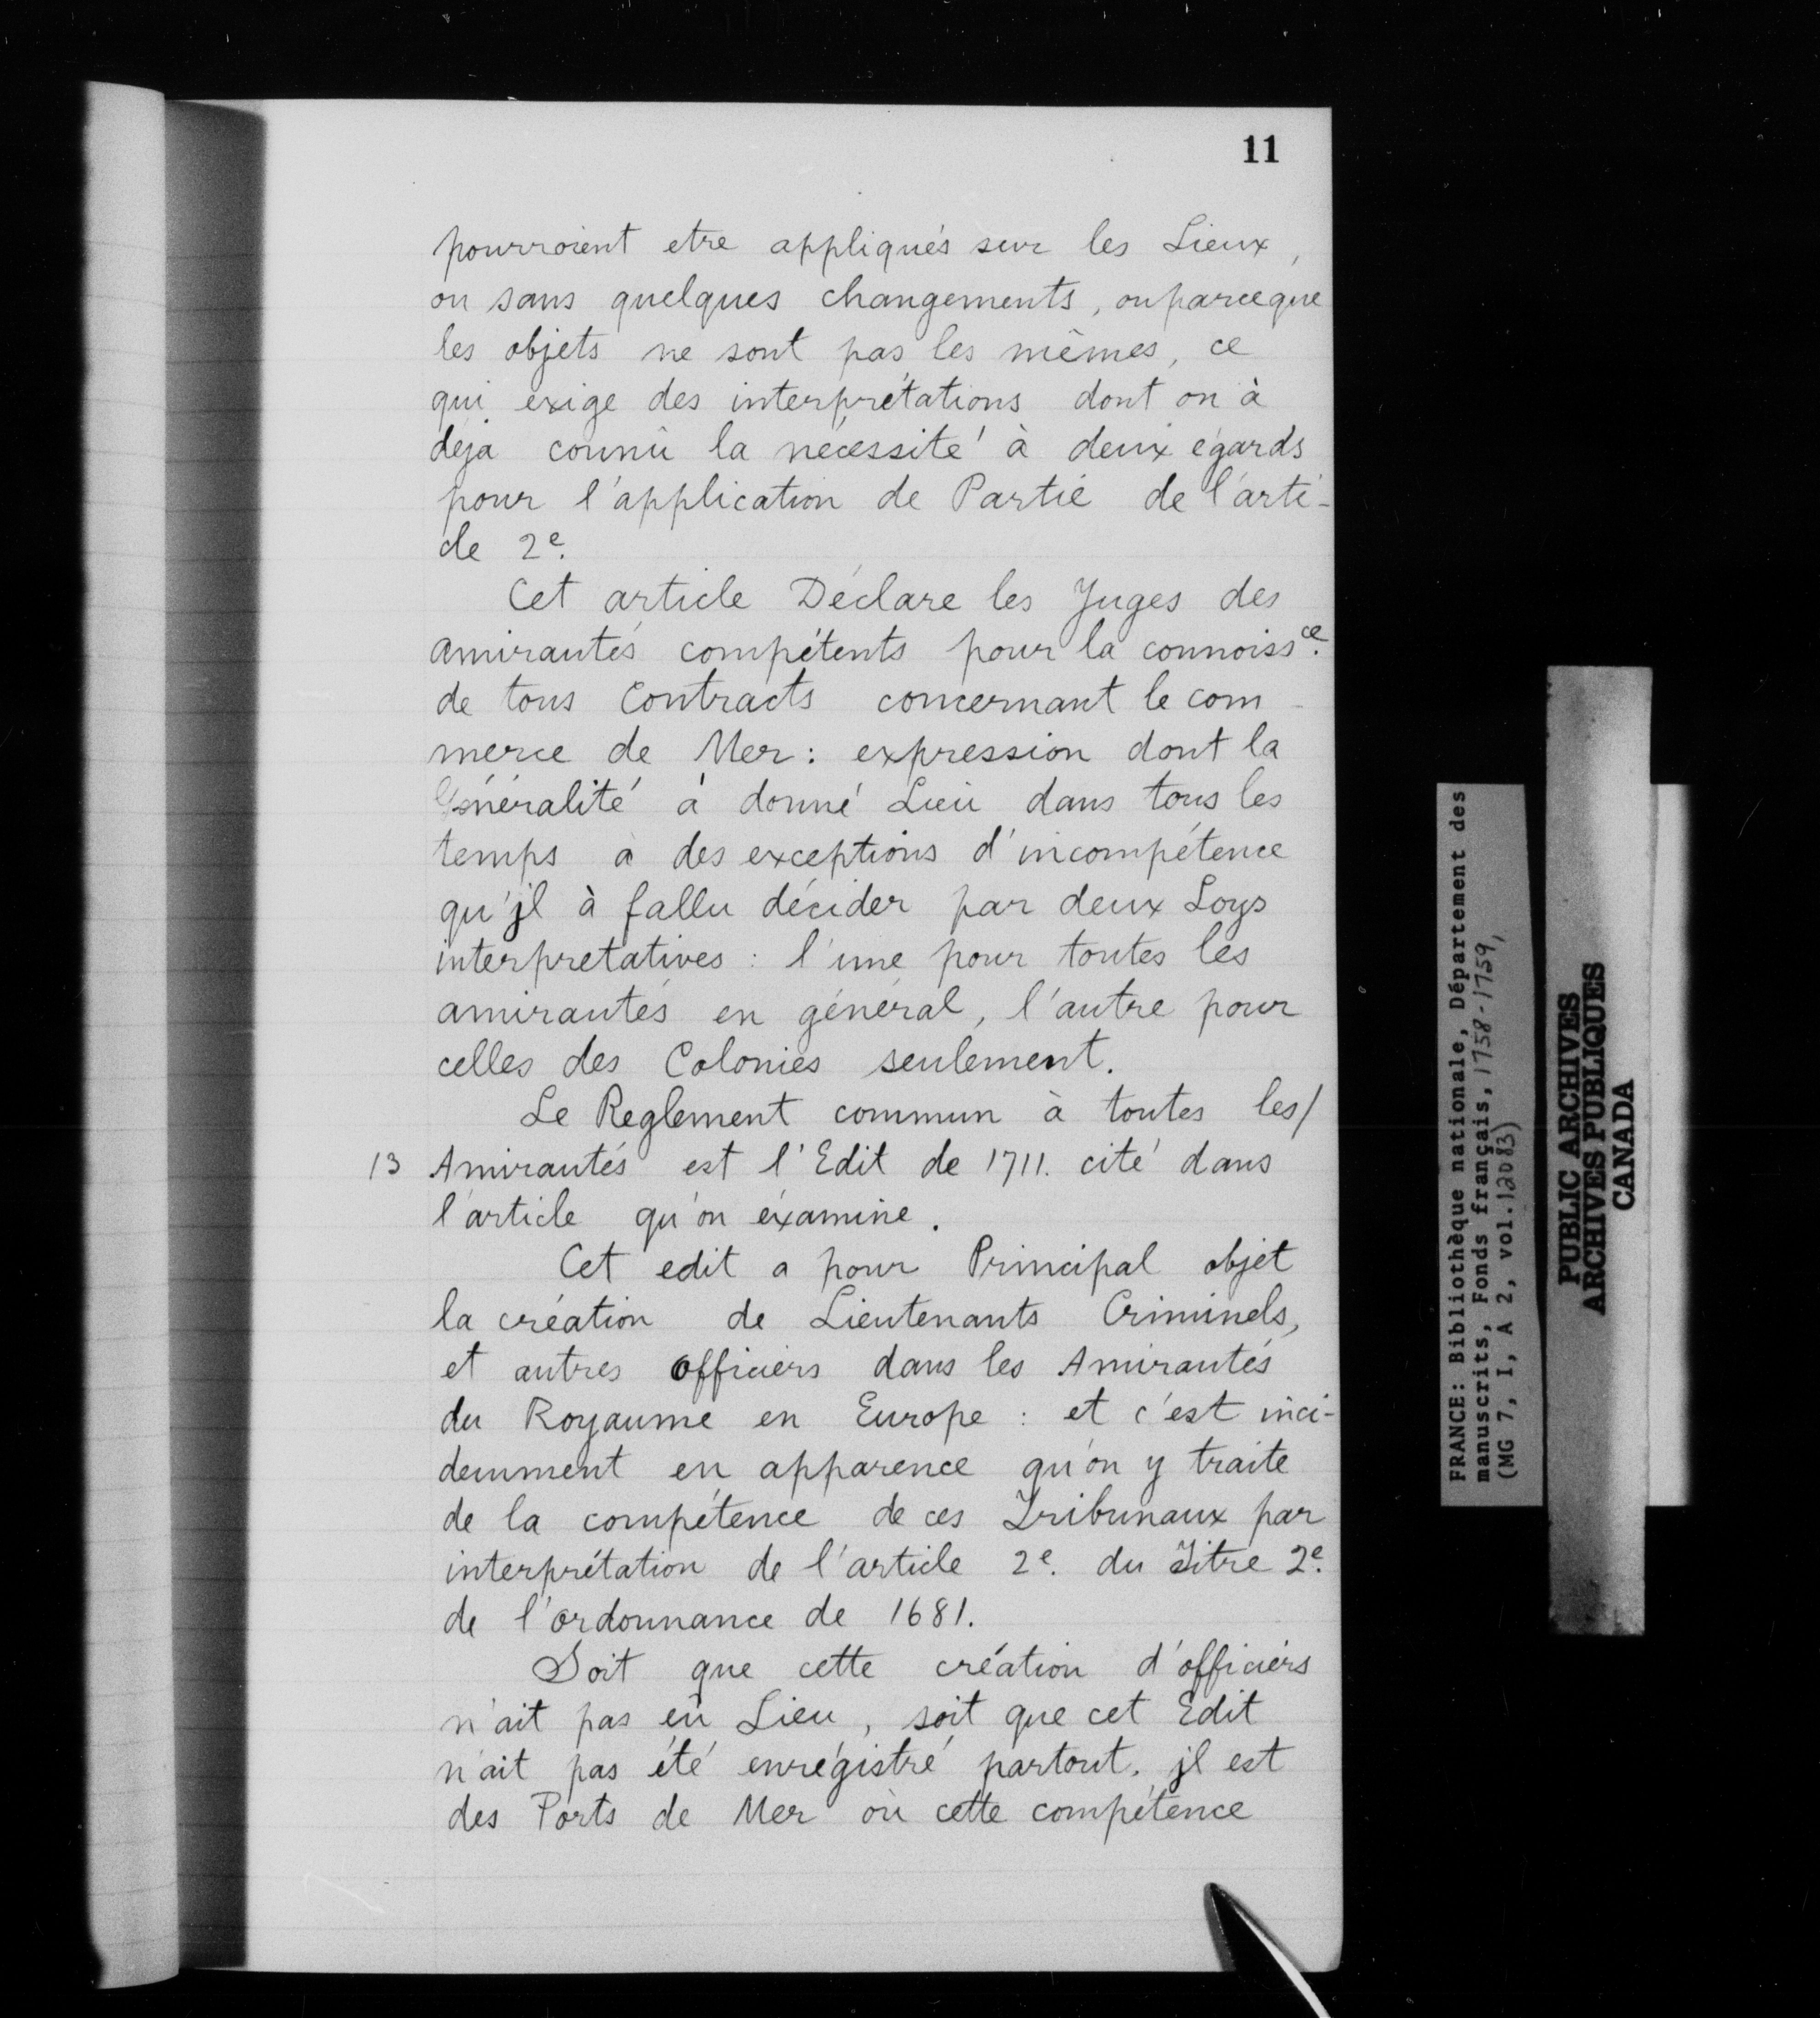 11
pourroient etre appliqués sur les Lieux,
ou sans quelques changements, ou parceque
les objets ne sont pas les mêmes, ce
qui exige des interprétations dont on à
déja connû la nécessité à deux égards
pour l'application de Partie de l'arti-
cle 2e.
Cet article Déclare les Juges des
amirautés compétents pour la connoissce.
de tous Contracts concernant le com-
merce de Mer: expression dont la
Généralité à donné Lieu dans tous les
temps à des exceptions d'incompétence
qu'jl à fallu décider par deux Loys
interpretatives: l'une pour toutes les
amirautés en général, l'autre pour
celles des Colonies seulement.
Le Reglement commun à toutes les/
13 Amirautés est l'Edit de 1711. cité dans
l'article qu'on éxamine.
Cet edit a pour Principal objet
la création de Lieutenants Criminels,
et autres officiers dans les Amirautés
du Royaume en Europe: et c'est inci-
demment en apparence qu'on y traite
de la compétence de ces Tribunaux par
interprétation de l'article 2e. du Titre 2e.
de l'ordonnance de 1681.
Soit que cette création d'officiers
n'ait pas eû Lieu, soit que cet Edit
n'ait pas été enrégistré partout, jl est
des Ports de Mer où cette compétence
FRANCE: Bibliothèque nationale, Département des
manuscrits, Fonds français, 1758-1759,
(MG 7, I, A 2, vol.12083)
PUBLIC ARCHIVES
ARCHIVES PUBLIQUES
CANADA